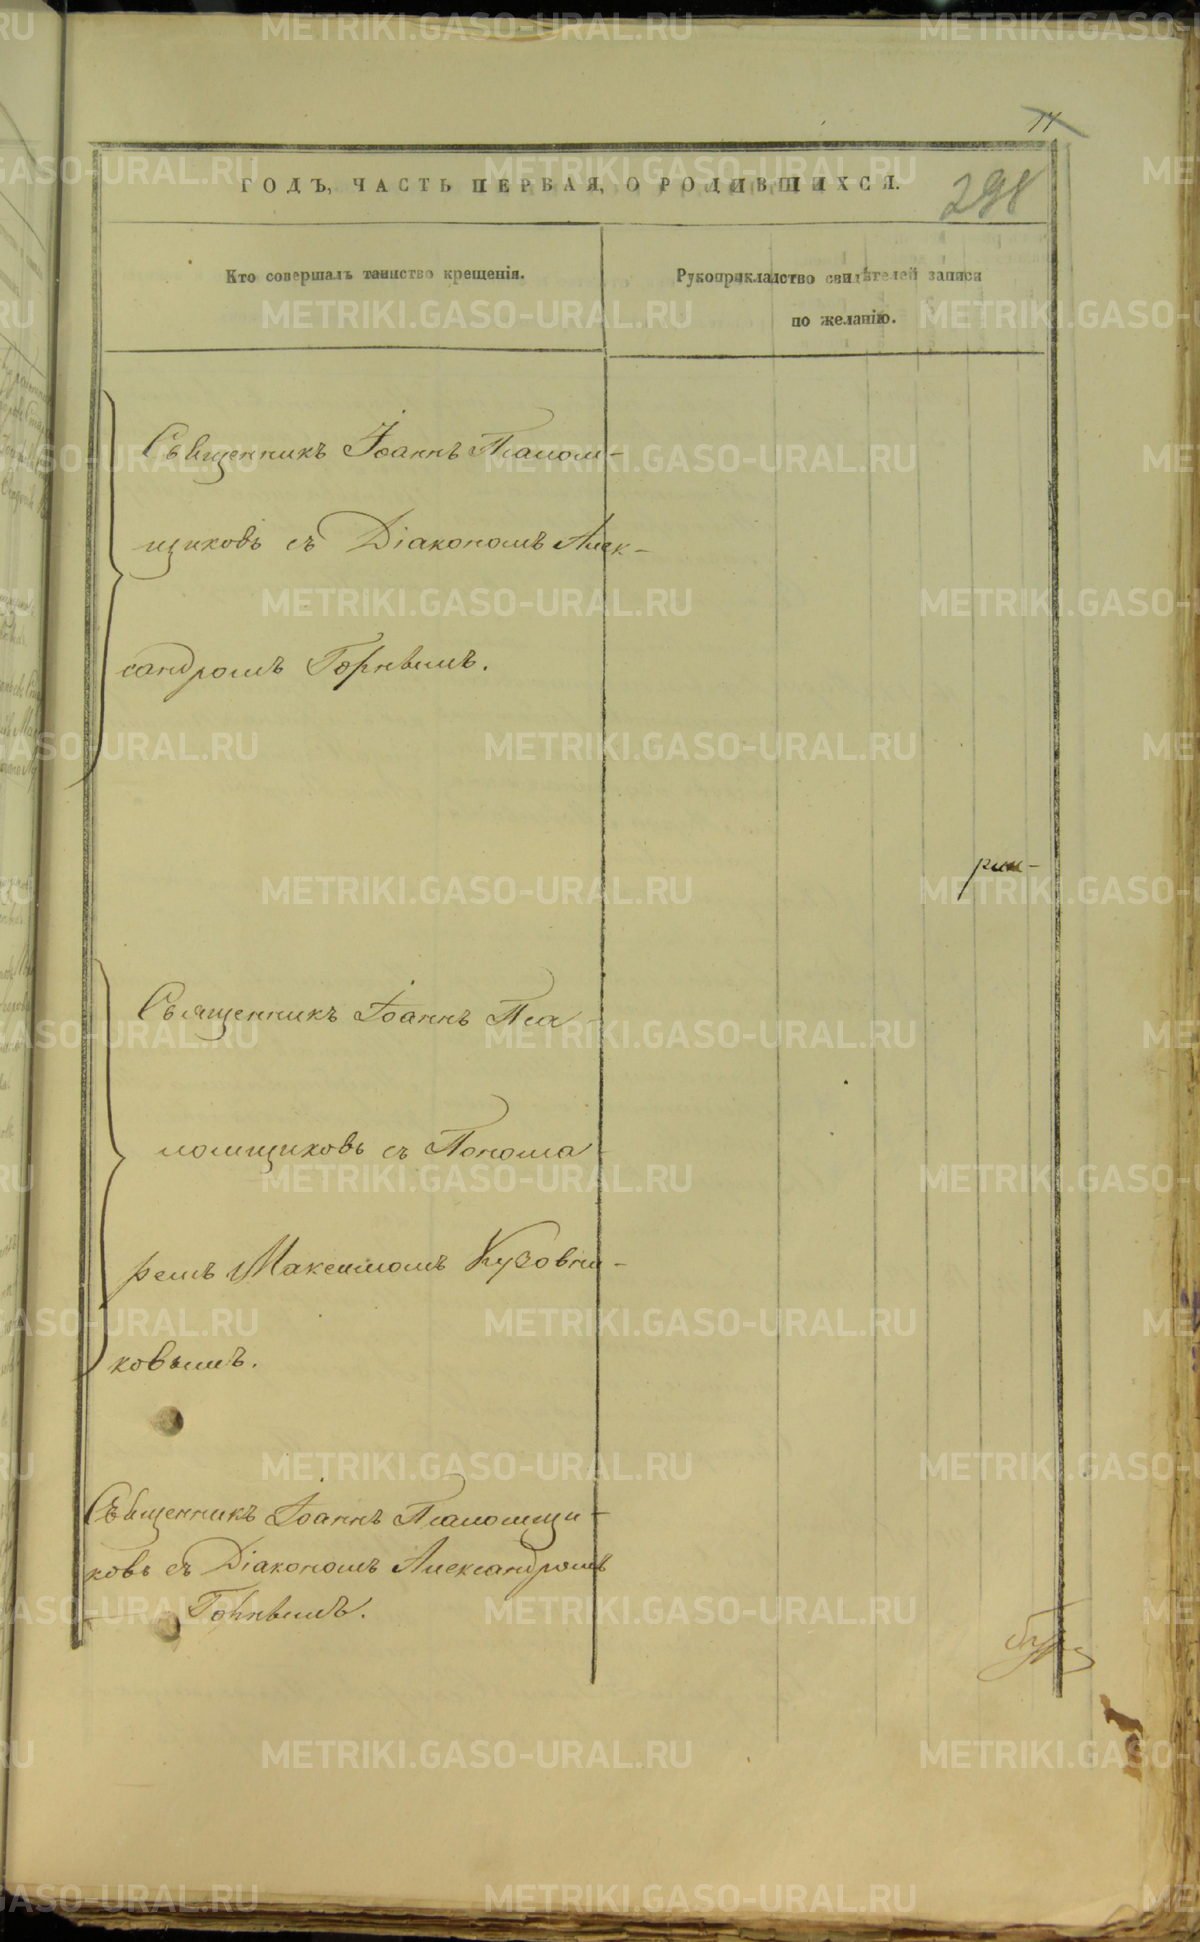 14
ГОДЪ, ЧАСТЬ ПЕРВАЯ, О РОДИВШИХСЯ.
298
Кто совершалъ таинство крещенія.
Рукоприкладство свидѣтелей записи
по желанію.
Священникъ Іоаннъ Псалом-
щиковъ съ Діакономъ Алек-
сандромъ Горнымъ.
рии-
Священникъ Іоаннъ Пса
ломщиковъ съ Понома
ремъ Максимомъ Кузовни-
ковымъ.
Священникъ Іоаннъ Псаломщи-
ковъ съ Діакономъ Александромъ
Горнымъ.
METRIKI.GASO-URAL.RU